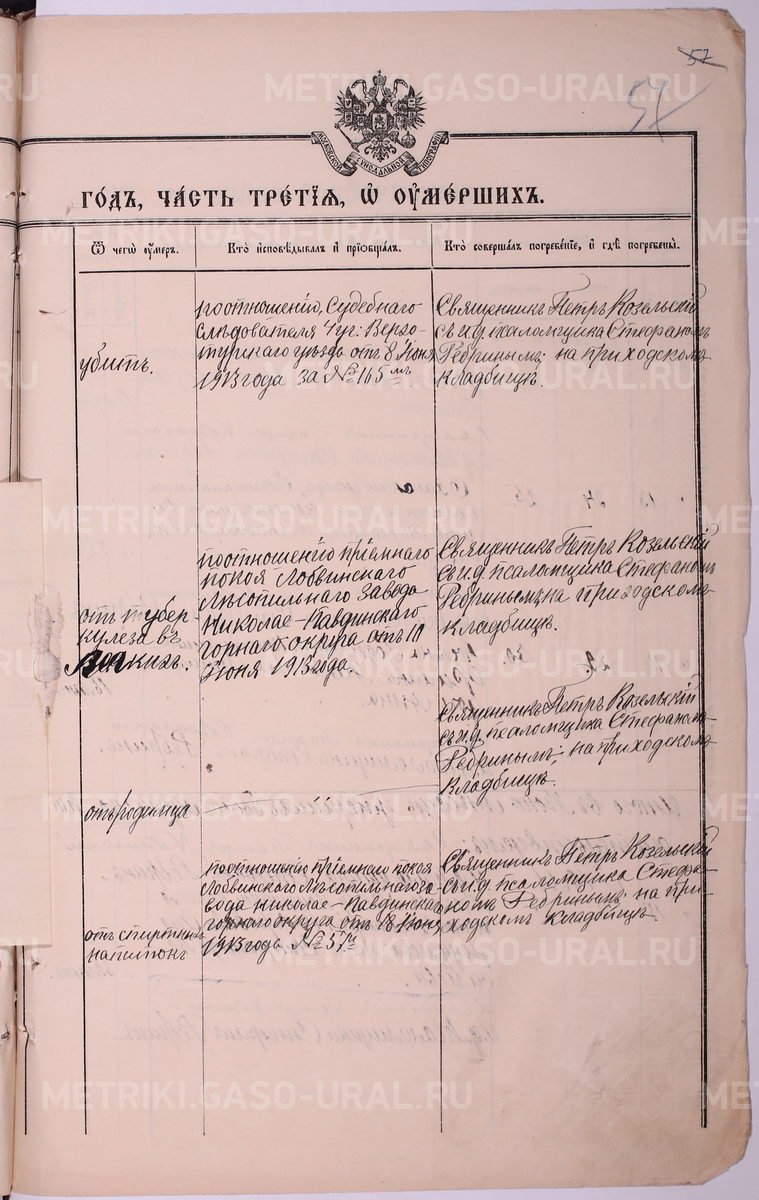 57
57
МОСКОВСКОЙ СѴНОДАЛЬНОЙ ТИПОГРАФІИ
ГО́ДЪ, ЧА́СТЬ ТРЕ́ТІѦ, Ѡ҆ ОУ҆МЕ́РШИХЪ.
Ѿ чегѡ̀ оу҆́меръ.
Кто̀ и҆сповѣ́дывалъ и҆ прїѡбща́лъ.
Кто̀ соверша́лъ погребе́нїе, и҆ гдѣ̀ погребены̀.
убитъ.
по отношенію, Судебнаго
Слѣдователя 4 уч: Верхо-
турскаго уѣзда отъ 8 Іюня
1913 года за № 165мъ
Священникъ Петръ Козельскій
съ и.д. псаломщика Стефаномъ
Ребринымъ; на приходскомъ
кладбищѣ.
отъ тубер-
кулеза въ
легкихъ.
по отношенію пріемнаго
покоя Лобвинскаго
Лѣсопильнаго Завода
Николае-Павдинскаго
горнаго округа отъ 11
Іюня 1913 года.
Священникъ Петръ Козельскій
съ и.д. псаломщика Стефаномъ
Ребринымъ на приходскомъ
кладбищѣ.
отъ родимца
Священникъ Петръ Козельскій
съ и.д. псаломщика Стефаномъ
Ребринымъ; на приходскомъ
кладбищѣ.
отъ спиртныхъ
напитокъ
по отношенію пріемнаго покоя
Лобвинскаго Лѣсопильнаго За
вода Николае-Павдинскаго
горнаго округа отъ 18 Іюня
1913 года №
Священникъ Петръ Козельскій
съ и.д. псаломщика Стефа-
номъ Ребринымъ; на при-
ходскомъ кладбищѣ.
METRIKI.GASO-URAL.RU